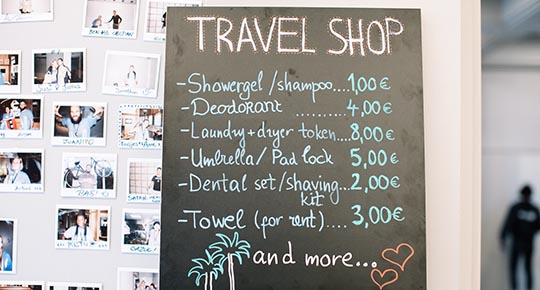 TRAVEL SHOP
-Showergel/shampoo....1,00€
-Deodorant ............ 4,00€
-Laundry+dryer token...8,00€
-Umbrella/Pad lock ... 5,00€
-Dental set/shaving kit...2,00€
-Towel (for rent).... 3,00€
and more...
JUANITO